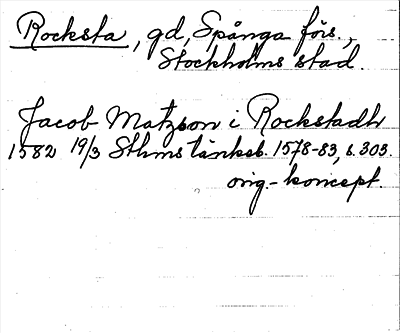 Rocksta, gd, Spånga förs.,
Stockholms stad.
Jacob Matzson i Rockstadh
1582 19/3 Sthms tänkeb. 1578-83, s. 303.
orig.-koncept.